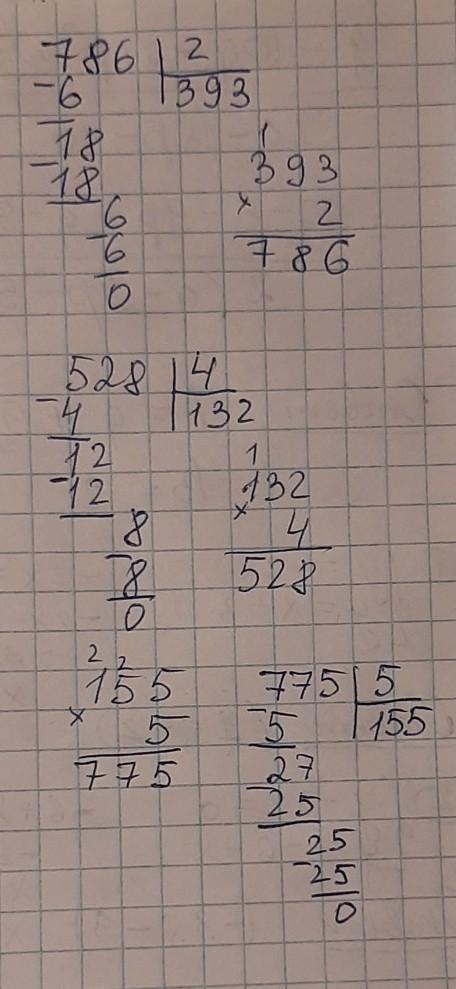 786 2
-6 393
-18
18
6
-6
0
1
393
× 2
786
528 4
-4 132
12
-12
8
-8
0
1
132
× 4
528
2 2
155
× 5
775
775 5
-5 155
27
-25
25
-25
0